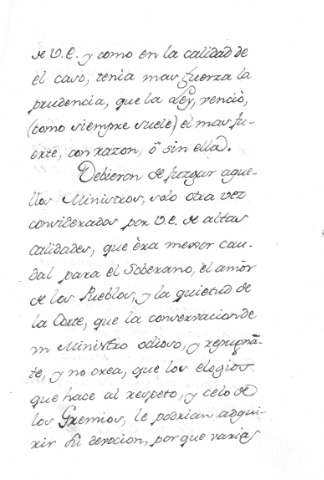 de V.E. y como en la calidad de
el caso, tenia mas fuerza la
prudencia, que la Ley, venciò,
(como siempre suele) el mas fu-
erte, con razon, ò sin ella.
Debieron de juzgar aque-
llos Ministros, solo otra vez
considerados por V.E. de altas
calidades, que èra menor cau-
dal para el Soberano, el amòr
de los Pueblos, y la quietud de
la Corte, que la conservacion de
un Ministro odioso, y repugnã-
te, y no crea, que los elogios
que hace al respeto, y celo de
los Gremios, le podrian adqui-
rir su devocion, por que varias